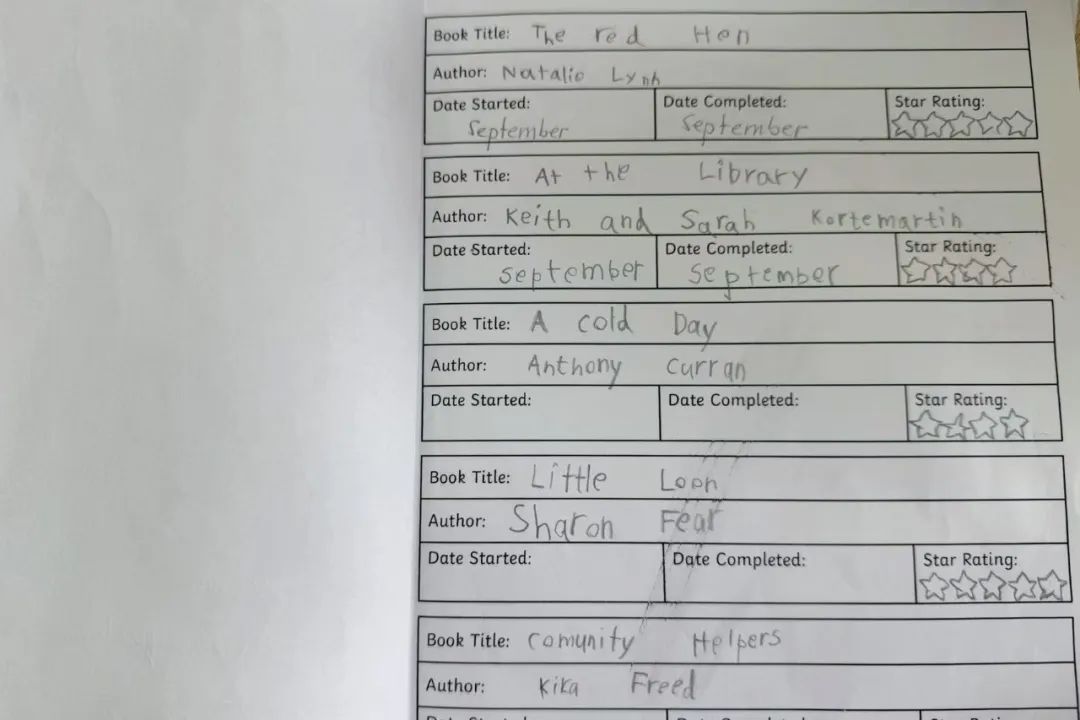 Book Title: The red Hen
Author: Natalie Lynh
Date Started: Date Completed: Star Rating:
September September
Book Title: At the Library
Author: Keith and Sarah Kortemartin
Date Started: Date Completed: Star Rating:
September September
Book Title: A cold Day
Author: Anthony Curran
Date Started: Date Completed: Star Rating:
Book Title: Little Loon
Author: Sharon Fear
Date Started: Date Completed: Star Rating:
Book Title: Comunity Helpers
Author: Kika Freed